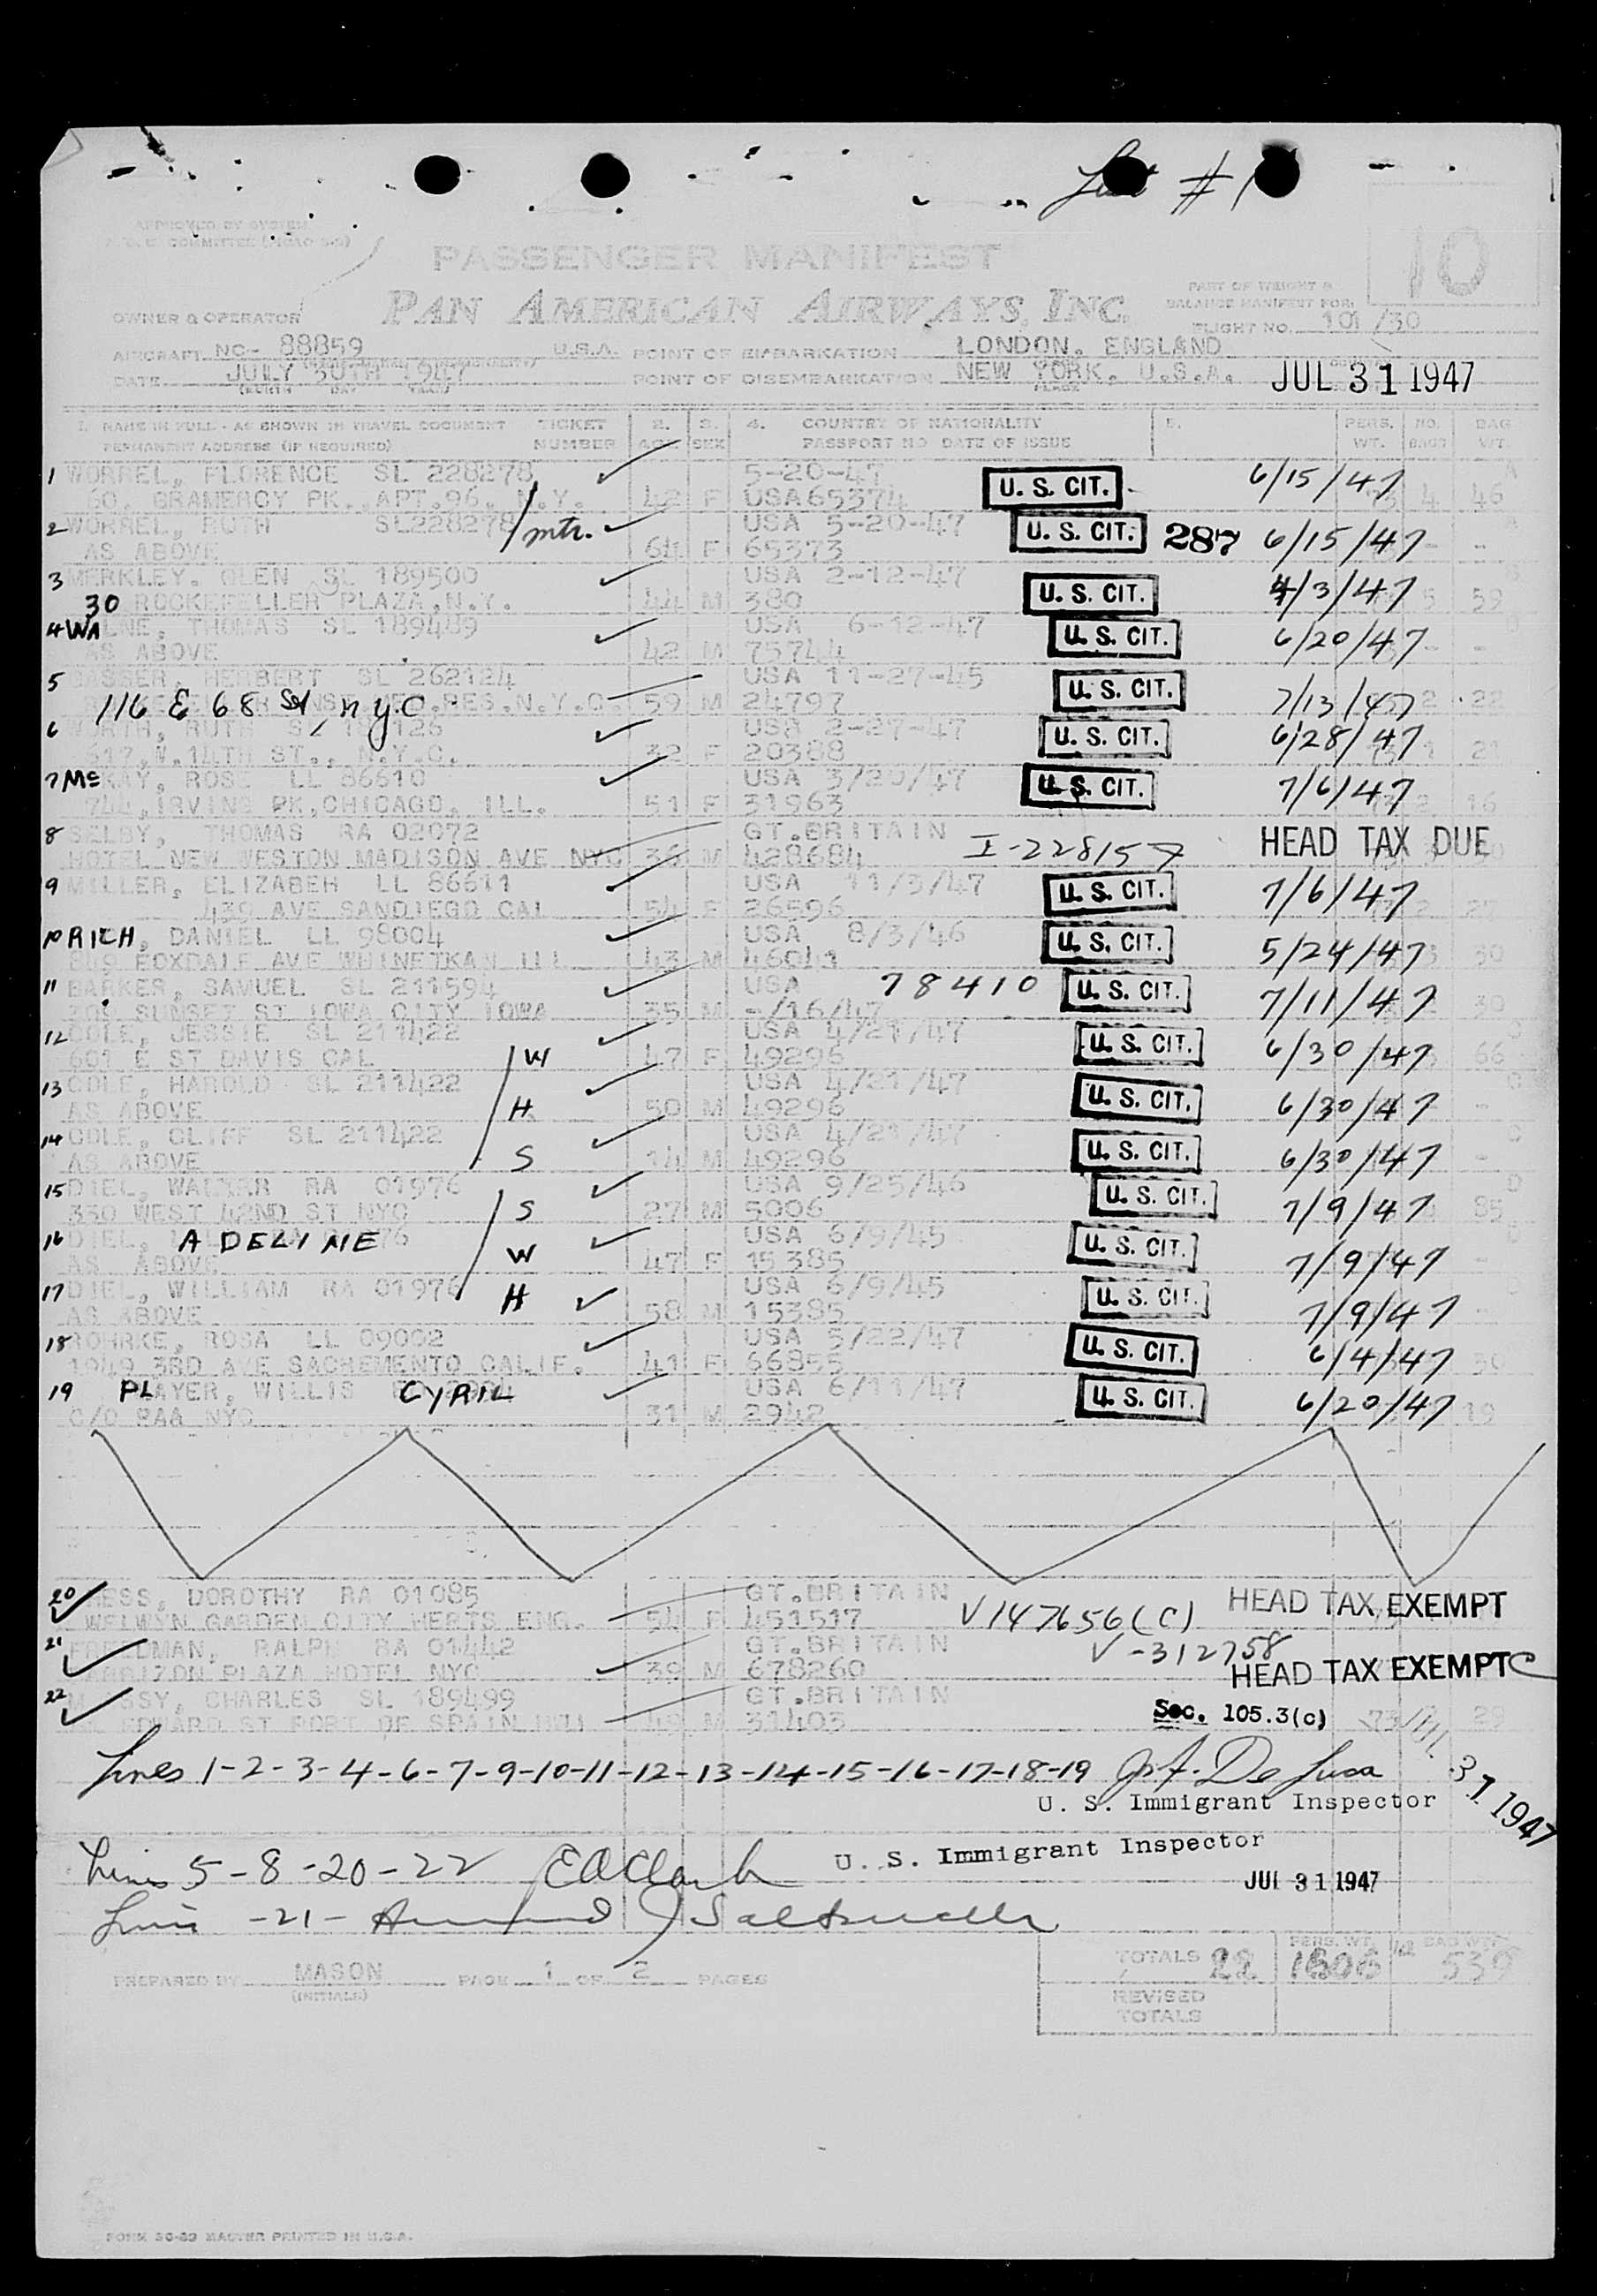 List #1
APPROVED BY SYSTEM
PASSENGER MANIFEST
10
PAN AMERICAN AIRWAYS, INC.
PART OF WEIGHT &
BALANCE MANIFEST FOR:
OWNER & OPERATOR
FLIGHT NO. 101/30
AIRCRAFT NC- 88859 U.S.A. POINT OF EMBARKATION LONDON, ENGLAND
DATE JULY 30TH 1947 POINT OF DISEMBARKATION NEW YORK, U.S.A. JUL 31 1947
1. NAME IN FULL - AS SHOWN IN TRAVEL DOCUMENT TICKET 2. 3. 4. COUNTRY OF NATIONALITY 5. PERS. NO. BAG
PERMANENT ADDRESS (IF REQUIRED) NUMBER AGE SEX PASSPORT NO DATE OF ISSUE WT. BAGS WT.
1 WORREL, FLORENCE SL 228278 5-20-47 U. S. CIT. 6/15/47
60. GRAMERCY PK., APT.96. N.Y. 42 F USA65374 4 46
2 WORREL, RUTH SL228278 mtr. USA 5-20-47 U. S. CIT. 287 6/15/47
AS ABOVE 64 F 65373 - -
3 MERKLEY. OLEN SL 189500 USA 2-12-47 U. S. CIT. 4/3/47
30 ROCKEFELLER PLAZA.N.Y. 44 M 380 5 59
4 WALNE, THOMAS SL 189489 USA 6-12-47 U. S. CIT. 6/20/47
AS ABOVE 42 M 75744 - -
5 GASSER, HERBERT SL 262124 USA 11-27-45 U. S. CIT. 7/13/47
116 E 68 St, NYC RES.N.Y.C. 59 M 24797 2 22
6 WORTH, RUTH SL 126 USA 2-27-47 U. S. CIT. 6/28/47
617.W.14TH ST., N.Y.C. 32 F 20388 1 21
7 McKAY, ROSE LL 86610 USA 3/20/47 U. S. CIT. 7/6/47
744,IRVING PK,CHICAGO, ILL. 51 F 31963 2 16
8 SELBY, THOMAS RA 02072 GT.BRITAIN HEAD TAX DUE
HOTEL NEW WESTON MADISON AVE NYC 36 M 428684 I-228157
9 MILLER, ELIZABEH LL 86611 USA 11/3/47 U. S. CIT. 7/6/47
439 AVE SANDIEGO CAL 54 F 26596 2 27
10 RICH, DANIEL LL 98004 USA 8/3/46 U. S. CIT. 5/24/47
849 FOXDALE AVE WHINETKAN ILL 43 M 46041 3 30
11 BARKER, SAMUEL SL 211594 USA 78410 U. S. CIT. 7/11/47
209 SUNSET ST IOWA CITY IOWA 35 M -/16/47 2 30
12 COLE, JESSIE SL 211422 USA 4/21/47 U. S. CIT. 6/30/47
601 E ST DAVIS CAL W 47 F 49296 66
13 COLE, HAROLD SL 211422 USA 4/21/47 U. S. CIT. 6/30/47
AS ABOVE H 50 M 49296 -
14 COLE, CLIFF SL 211422 USA 4/21/47 U. S. CIT. 6/30/47
AS ABOVE S 14 M 49296 -
15 DIEL, WALTER RA 01976 USA 9/25/46 U. S. CIT. 7/9/47
330 WEST 42ND ST NYC S 27 M 5006 85
16 DIEL, ADELINE 76 USA 6/9/45 U. S. CIT. 7/9/47
AS ABOVE W 47 F 15385 -
17 DIEL, WILLIAM RA 01976 H USA 6/9/45 U. S. CIT. 7/9/47
AS ABOVE 58 M 15385 -
18 ROHRKE, ROSA LL 09002 USA 5/22/47 U. S. CIT. 6/4/47
1949 3RD AVE SACREMENTO CALIF. 41 F 66855 30
19 PLAYER, WILLIS CYRIL USA 6/11/47 U. S. CIT. 6/20/47
C/O PAA NYC 31 M 2942 19
20 HESS, DOROTHY RA 01085 GT.BRITAIN HEAD TAX EXEMPT
WELWYN GARDEN CITY HERTS ENG. 54 F 451517 V147656(C)
21 FREEDMAN, RALPH RA 01442 GT.BRITAIN V-312758
BARBIZON PLAZA HOTEL NYC 39 M 678260 HEAD TAX EXEMPT C
22 CHARLES SL 189499 GT.BRITAIN
EDWARD ST PORT OF SPAIN 49 M 31403 Sec. 105.3(c) 73 29
Lines 1-2-3-4-6-7-9-10-11-12-13-14-15-16-17-18-19 J. F. De Lusa
U. S. Immigrant Inspector 31 1947
Lines 5-8-20-22 E A Clark U. S. Immigrant Inspector
JUL 31 1947
Line -21-
TOTALS 22 PERS. WT. 1606 BAG WT. 539
PREPARED BY MASON PAGE 1 OF 2 PAGES
(INITIALS)
REVISED
TOTALS
FORM 30-83 MASTER PRINTED IN U.S.A.